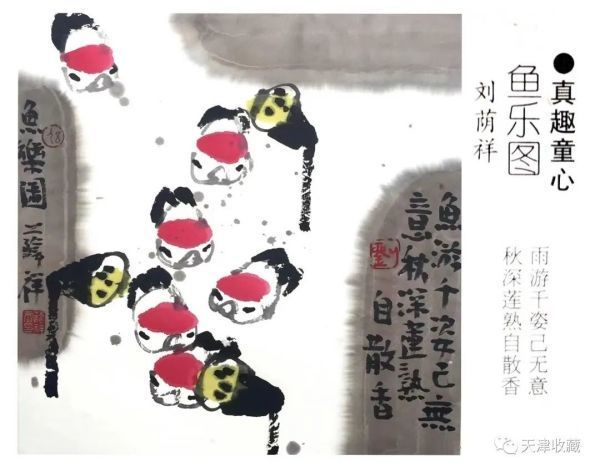 ●真趣童心
鱼乐图
刘荫祥
雨游千姿己无意
秋深莲熟自散香
魚游千姿己無
意秋深蓮熟
自散香
劉
魚樂圖 荫祥
天津收藏